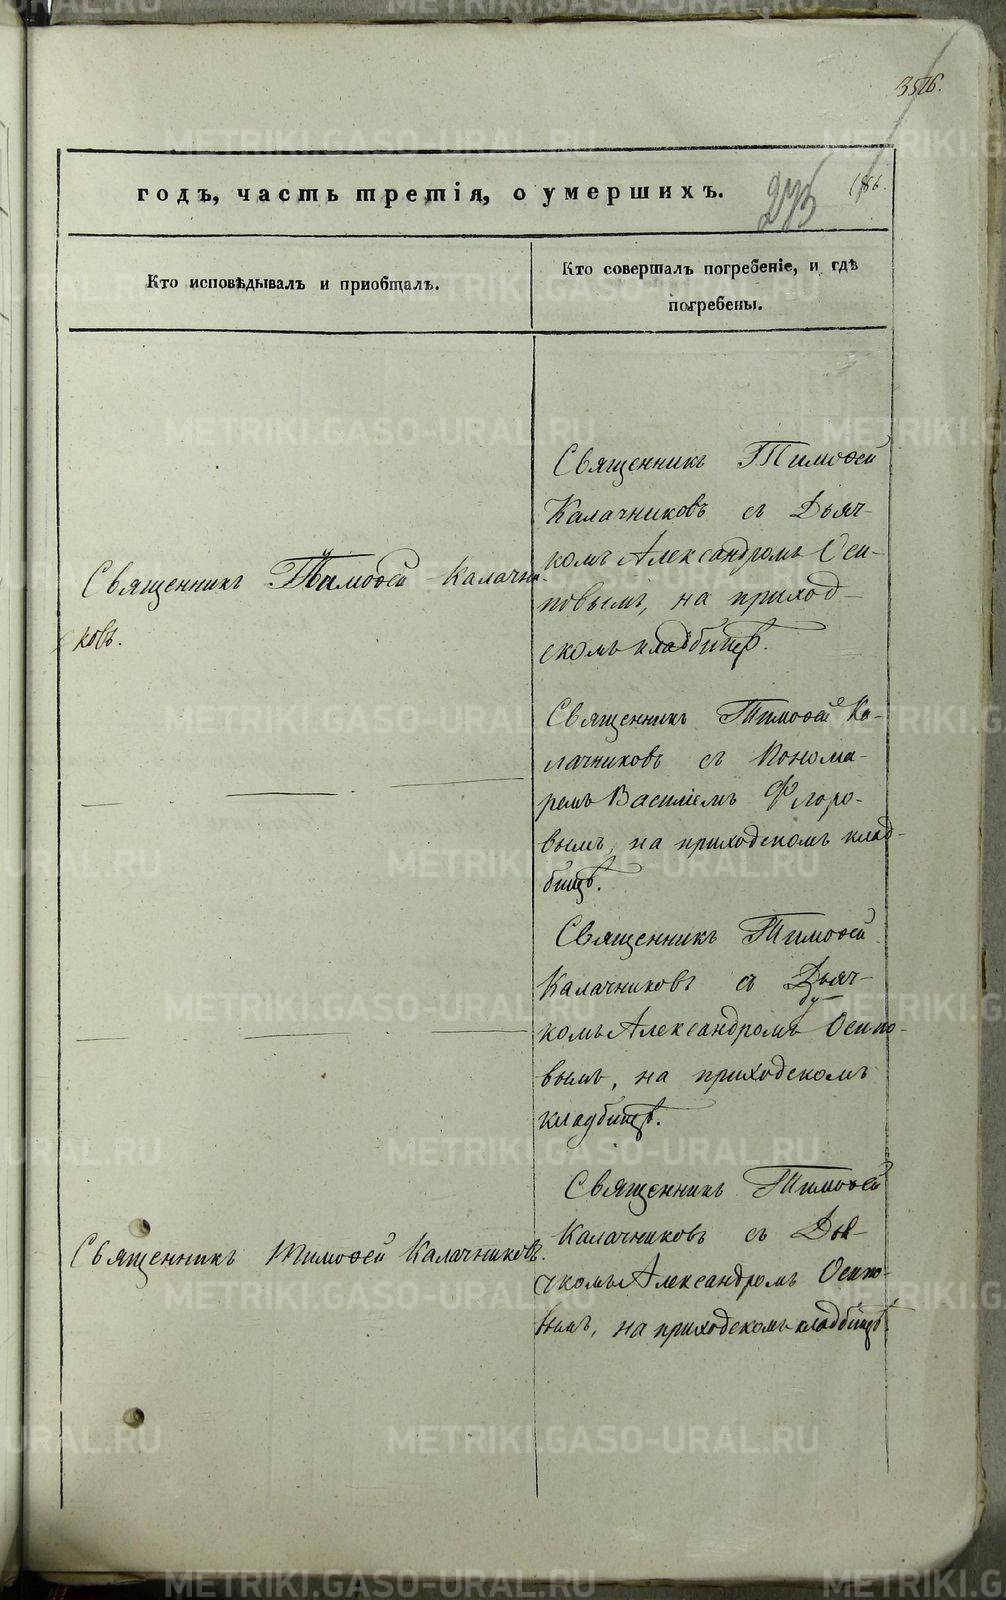 годъ, часть третія, о умершихъ.
275
Кто исповѣдывалъ и пріобщалъ.
Кто совершалъ погребеніе, и гдѣ
погребены.
Священникъ Тимоѳей Калачни-
ковъ.
Священникъ Тимоѳей
Калачниковъ съ Дьяч-
комъ Александромъ Оси-
повымъ, на приход-
скомъ кладбищѣ.
Священникъ Тимоѳей Ка-
лачниковъ съ Понома-
ремъ Василіемъ Флоро-
вымъ, на приходскомъ клад-
бищѣ.
Священникъ Тимоѳей
Калачниковъ съ Дьяч-
комъ Александромъ Осипо-
вымъ, на приходскомъ
кладбищѣ.
Священникъ Тимоѳей Калачниковъ.
Священникъ Тимоѳей
Калачниковъ съ Дья-
чкомъ Александромъ Осипо-
вымъ, на приходскомъ кладбищѣ.
METRIKI.GASO-URAL.RU